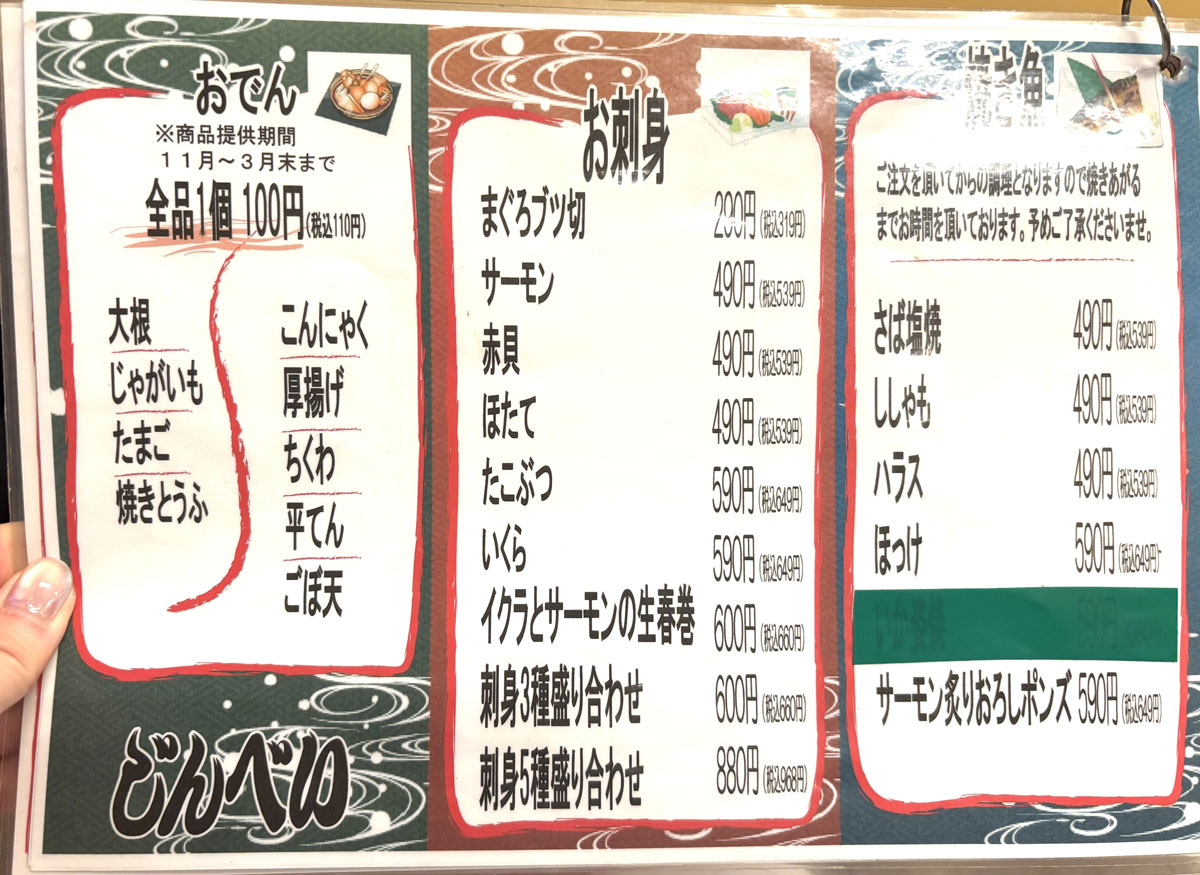 おでん
※商品提供期間
11月～3月末まで
全品1個 100円(税込110円)
大根
じゃがいも
たまご
焼きとうふ
こんにゃく
厚揚げ
ちくわ
平てん
ごぼ天
どんべい
お刺身
まぐろブツ切 290円(税込319円)
サーモン 490円(税込539円)
赤貝 490円(税込539円)
ほたて 490円(税込539円)
たこぶつ 590円(税込649円)
いくら 590円(税込649円)
イクラとサーモンの生春巻 600円(税込660円)
刺身3種盛り合わせ 600円(税込660円)
刺身5種盛り合わせ 880円(税込968円)
焼き魚
ご注文を頂いてからの調理となりますので焼きあがる
までお時間を頂いております。予めご了承くださいませ。
さば塩焼 490円(税込539円)
ししゃも 490円(税込539円)
ハラス 490円(税込539円)
ほっけ 590円(税込649円)
いか姿焼 590円
サーモン炙りおろしポンズ 590円(税込649円)